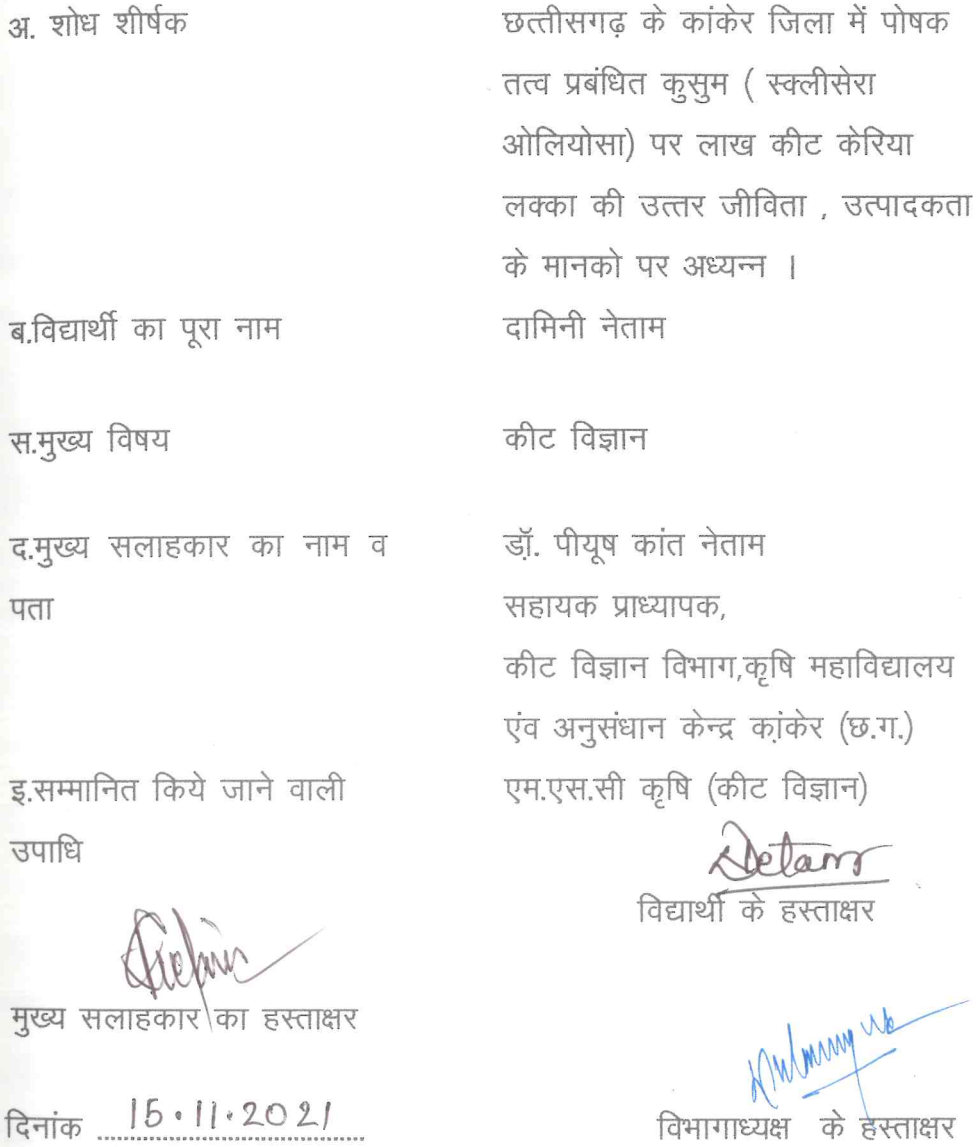 अ. शोध शीर्षक छत्तीसगढ़ के कांकेर जिला में पोषक
तत्व प्रबंधित कुसुम ( स्क्लीसेरा
ओलियोसा) पर लाख कीट केरिया
लक्का की उत्तर जीविता , उत्पादकता
के मानको पर अध्यन्न ।
ब.विद्यार्थी का पूरा नाम दामिनी नेताम
स.मुख्य विषय कीट विज्ञान
द.मुख्य सलाहकार का नाम व डॉ. पीयूष कांत नेताम
पता सहायक प्राध्यापक,
कीट विज्ञान विभाग,कृषि महाविद्यालय
एंव अनुसंधान केन्द्र कांकेर (छ.ग.)
इ.सम्मानित किये जाने वाली एम.एस.सी कृषि (कीट विज्ञान)
उपाधि
विद्यार्थी के हस्ताक्षर
मुख्य सलाहकार का हस्ताक्षर
दिनांक 15.11.2021 विभागाध्यक्ष के हस्ताक्षर